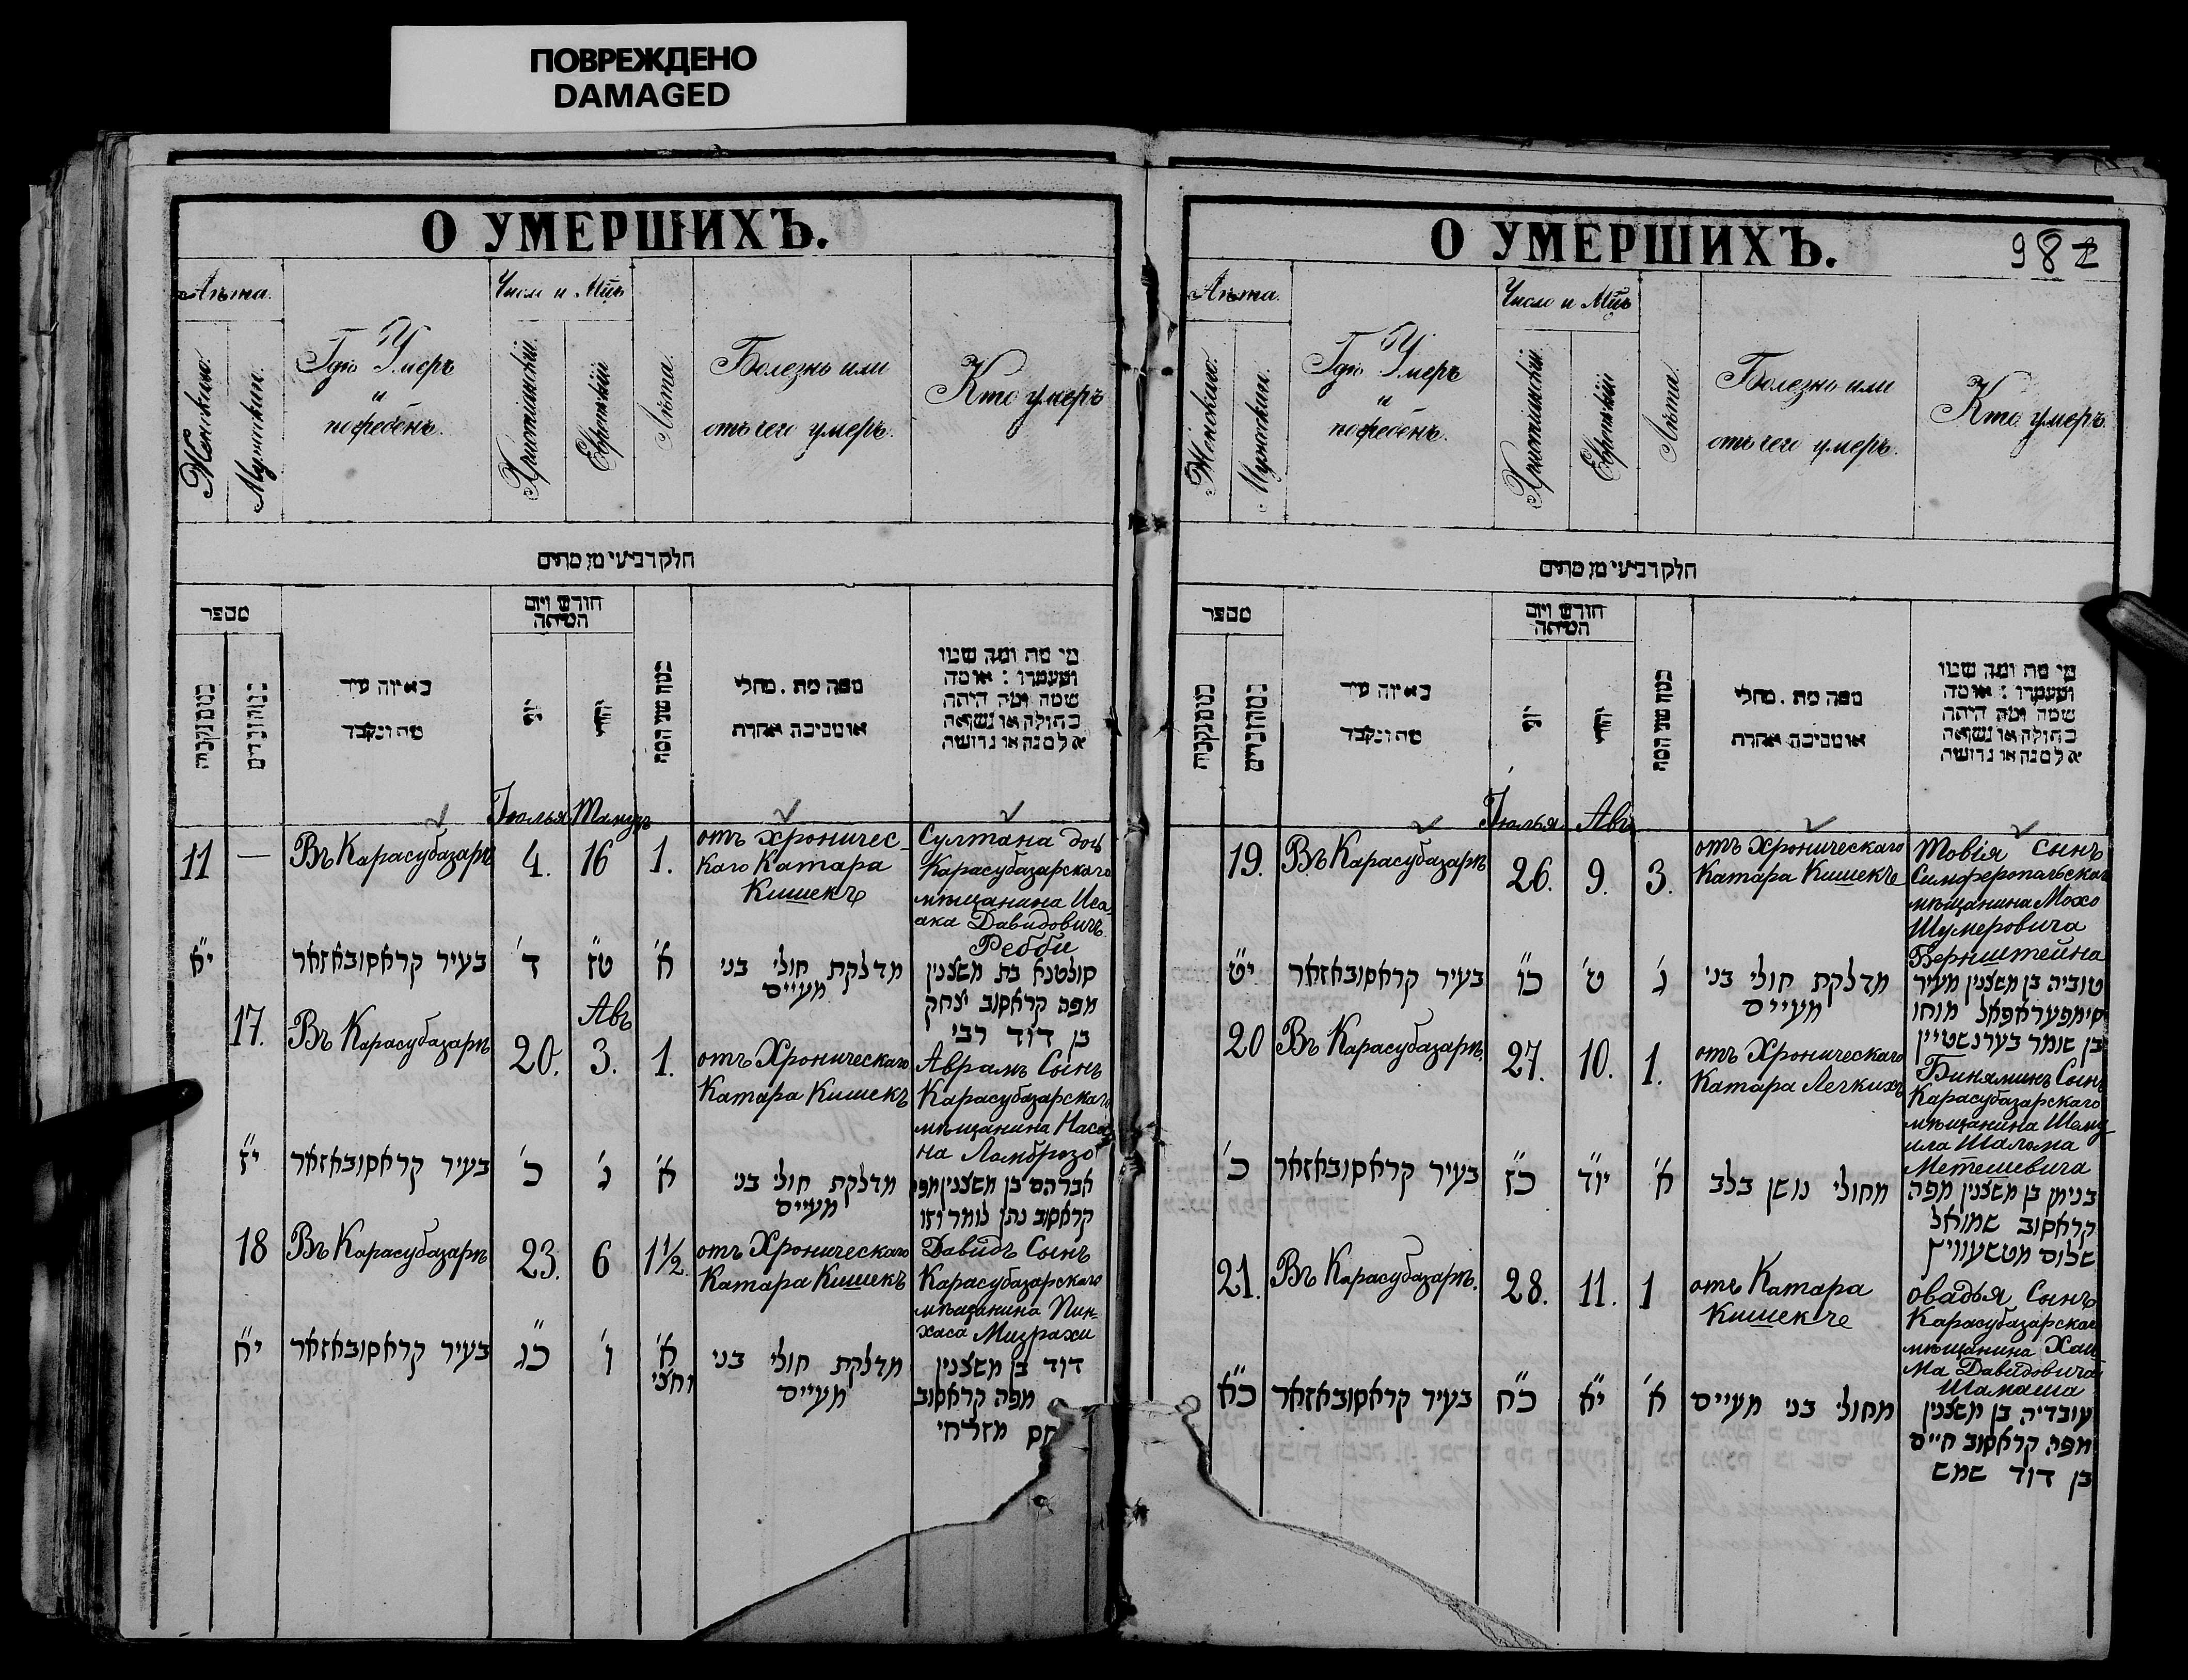 ПОВРЕЖДЕНО
DAMAGED
О УМЕРШИХЪ.
Лѣта.
Женскихъ.
Мужскихъ.
Гдѣ Умеръ
и
погребенъ.
Число и Мцъ
Христіанскій.
Еврейскій
Лѣта.
Болезнь или
отъ чего умеръ.
Кто умеръ
חלק רביעי מן מתים
מספר
באיזה עיר
מת ונקבר
חודש ויום
המיתה
כמה שני המת
ממה מת . מחלי
או מסיבה אחרת
מי מת ומה שמו
ומעמדו : או מה
שמה ומה היתה
בתולה או נשואה
אלמנה או גרושה
Іюлья Тамузъ
11 — Въ Карасубазарѣ 4. 16 1.
отъ хроничес-
каго Катара
Кишекъ
Султана дочь
Карасубазарскаго
мѣщанина Иса-
ака Давидовичъ
Ребби
י"א בעיר קראסובאזאר ד' ט"ז א'
מדלקת חולי בני
מעיים
סולטנא בת משצנין
מפה קראסוב יצחק
בן דוד רבי
Авъ
17. Въ Карасубазарѣ 20. 3. 1.
отъ Хроническаго
Катара Кишекъ
Аврамъ Сынъ
Карасубазарскаго
мѣщанина Наса-
на Ломброзо
י"ז בעיר קראסובאזאר כ' ג' א'
מדלקת חולי בני
מעיים
אברהם בן משצנין מפה
קראסוב נתן לומרוזו
18 Въ Карасубазарѣ 23. 6 1½.
отъ Хроническаго
Катара Кишекъ
Давидъ Сынъ
Карасубазарскаго
мѣщанина Пин-
хаса Мизрахи
י"א בעיר קראסובאזאר כ"ג ו' א'
וחצי
מדלקת חולי בני
מעיים
דוד בן משצנין
מפה קראסוב
חס מזרחי
О УМЕРШИХЪ.
98
Лѣта.
Женскихъ.
Мужскихъ.
Гдѣ Умеръ
и
погребенъ.
Число и Мцъ
Христіанскій.
Еврейскій
Лѣта.
Болезнь или
отъ чего умеръ.
Кто умеръ
חלק רביעי מן מתים
מספר
באיזה עיר
מת ונקבר
חודש ויום
המיתה
כמה שני המת
ממה מת . מחלי
או מסיבה אחרת
מי מת ומה שמו
ומעמדו : או מה
שמה ומה היתה
בתולה או נשואה
אלמנה או גרושה
Іюлья Авъ
19. Въ Карасубазарѣ 26. 9. 3.
отъ Хроническаго
Катара Кишекъ
Товія сынъ
Симферопольскаго
мѣщанина Мохо
Шумеровича
Бернштейна
י"ט בעיר קראסובאזאר כ"ו ט' ג'
מדלקת חולי בני
מעיים
טוביה בן משצנין מעיר
סימפעראפאל מוחו
בן שומר בערנשטיין
20 Въ Карасубазарѣ. 27. 10. 1.
отъ Хроническаго
Катара Легкихъ
Биняминъ Сынъ
Карасубазарскаго
мѣщанина Шаму-
ила Шалома
Метешевича
כ' בעיר קראסובאזאר כ"ז יו"ד א'
מחולי נושן בלב
בנימן בן משצנין מפה
קראסוב שמואל
שלום מטשעוויץ
21. Въ Карасубазарѣ. 28. 11. 1
отъ Катара
Кишекъ
овадья Сынъ
Карасубазарскаго
мѣщанина Хаи-
ма Давидовича
Шамаша
כ"א בעיר קראסובאזאר כ"ח י"א א'
מחולי בני מעיים
עובדיה בן משצנין
מפה קראסוב חיים
בן דוד שמש